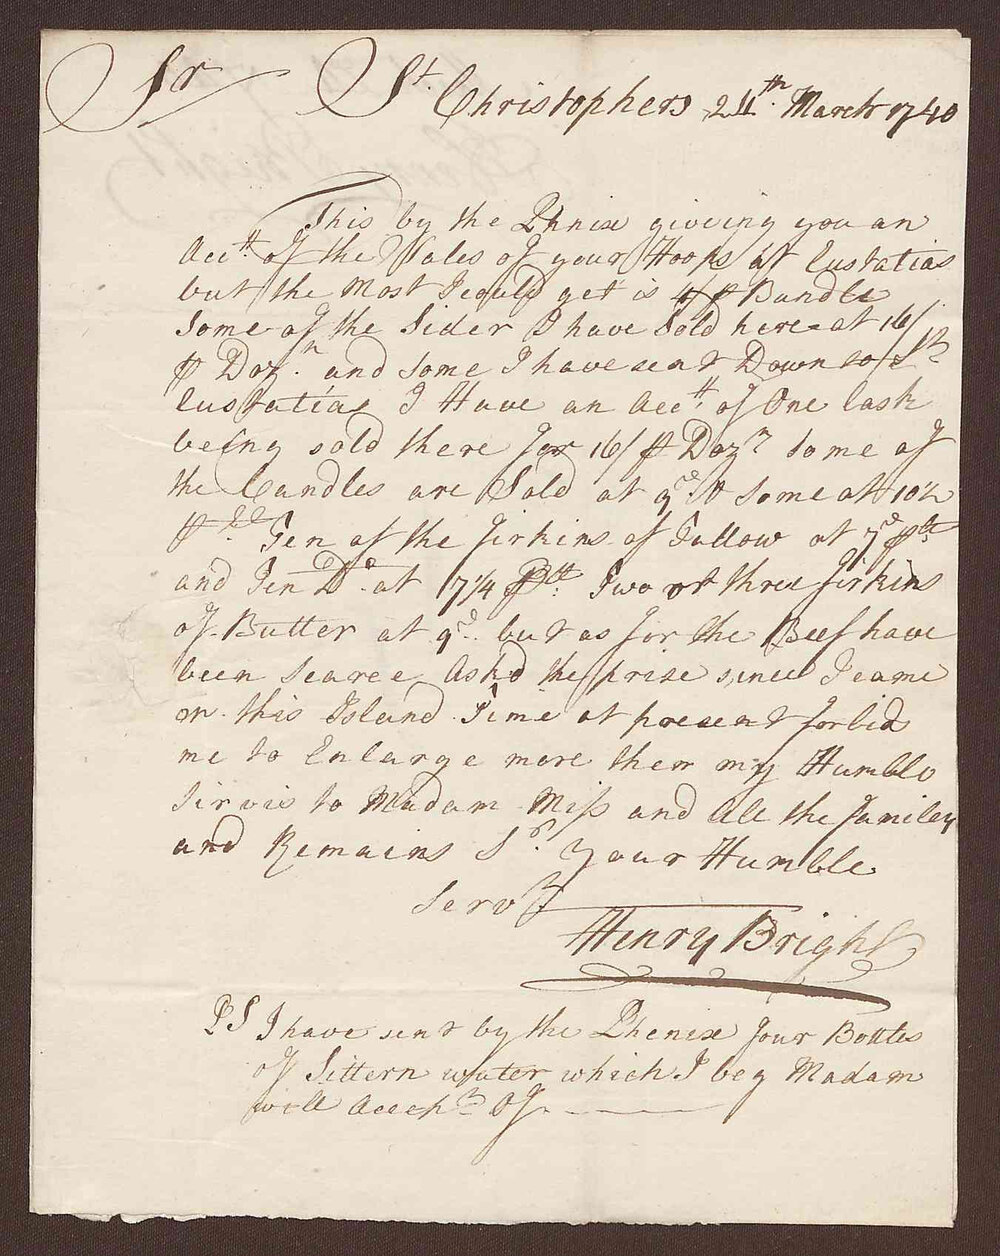 Sr St. Christophers 24th March 1740
This by the Phenix giveing you an
Acctt of the Sales of your Hoops at Eustatias
but the Most I could get is 4/ ⅌ Bundle
Some of the Sider I have Sold here at 16/
⅌ Dozn. and some I have sent Down to St
Eustatias I Have an Acctt. of One Cask
being sold there for 16/ ⅌ Dozn Some of
the Candles are Sold at 9d some at 10½
Ten of the firkins of Tallow at 7d ⅌ lb
and Ten Do. at 7¼ ⅌ lb. Two or three firkins
of Butter at 9d. but as for the Beef have
been Scarce Askd the prise since I came
on this Island Time at present forbids
me to Enlarge more then my Humble
Sirvis to Madam Miss and All the familey
and Remains Sr. your Humble
Servt
Henry Bright
PS I have sent by the Phenix four Bottles
of Sittern water which I beg Madam
will Accept Of